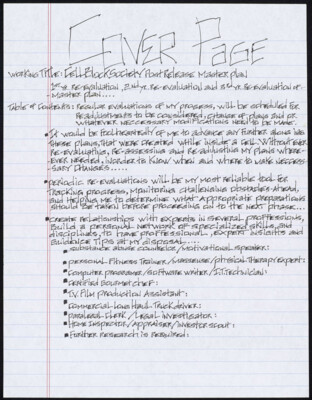 COVER PAGE
WORKING TITLE: CELL BLOCK SOCIETY POST RELEASE MASTER PLAN
1st yr. re-evaluation, 2nd yr. re-evaluation and 3rd yr. re-evaluation of -
- MASTER PLAN....
Table of Contents: regular evaluations of my progress, will be scheduled for
readjustments to be considered, change of plans and or
whatever necessary modifications need to be made.
• It would be foolhearted of me to advance any further along with
these plans, that were created while inside a cell. Without ever
re-evaluating, re-assessing and re-adjusting my plans where-
ever needed, in order to know when and where to make necces-
sary changes.....
• periodic re-evaluations will be my most reliable tool for
tracking progress, monitoring challenging obstacles ahead,
and helping me to determine what appropriate preparations
should be taken before proceeding on to the next phase...
• create relationships with experts in several proffessions,
build a personal network of specialized skills, and
disciplines, to have proffessional, expert insights and
guidance tips at my disposal.....
• substance abuse counselor/motivational speaker:
• personal fitness trainer/masseuse/physical therapy expert:
• computer programer/software writer/I.T. technician:
• certified gourmet chef:
• T.V. Film production Assistant:
• commercial long haul truck driver:
• paralegal clerk/legal investigator:
• Home inspector/appraiser/investor scout:
• Further research is required: